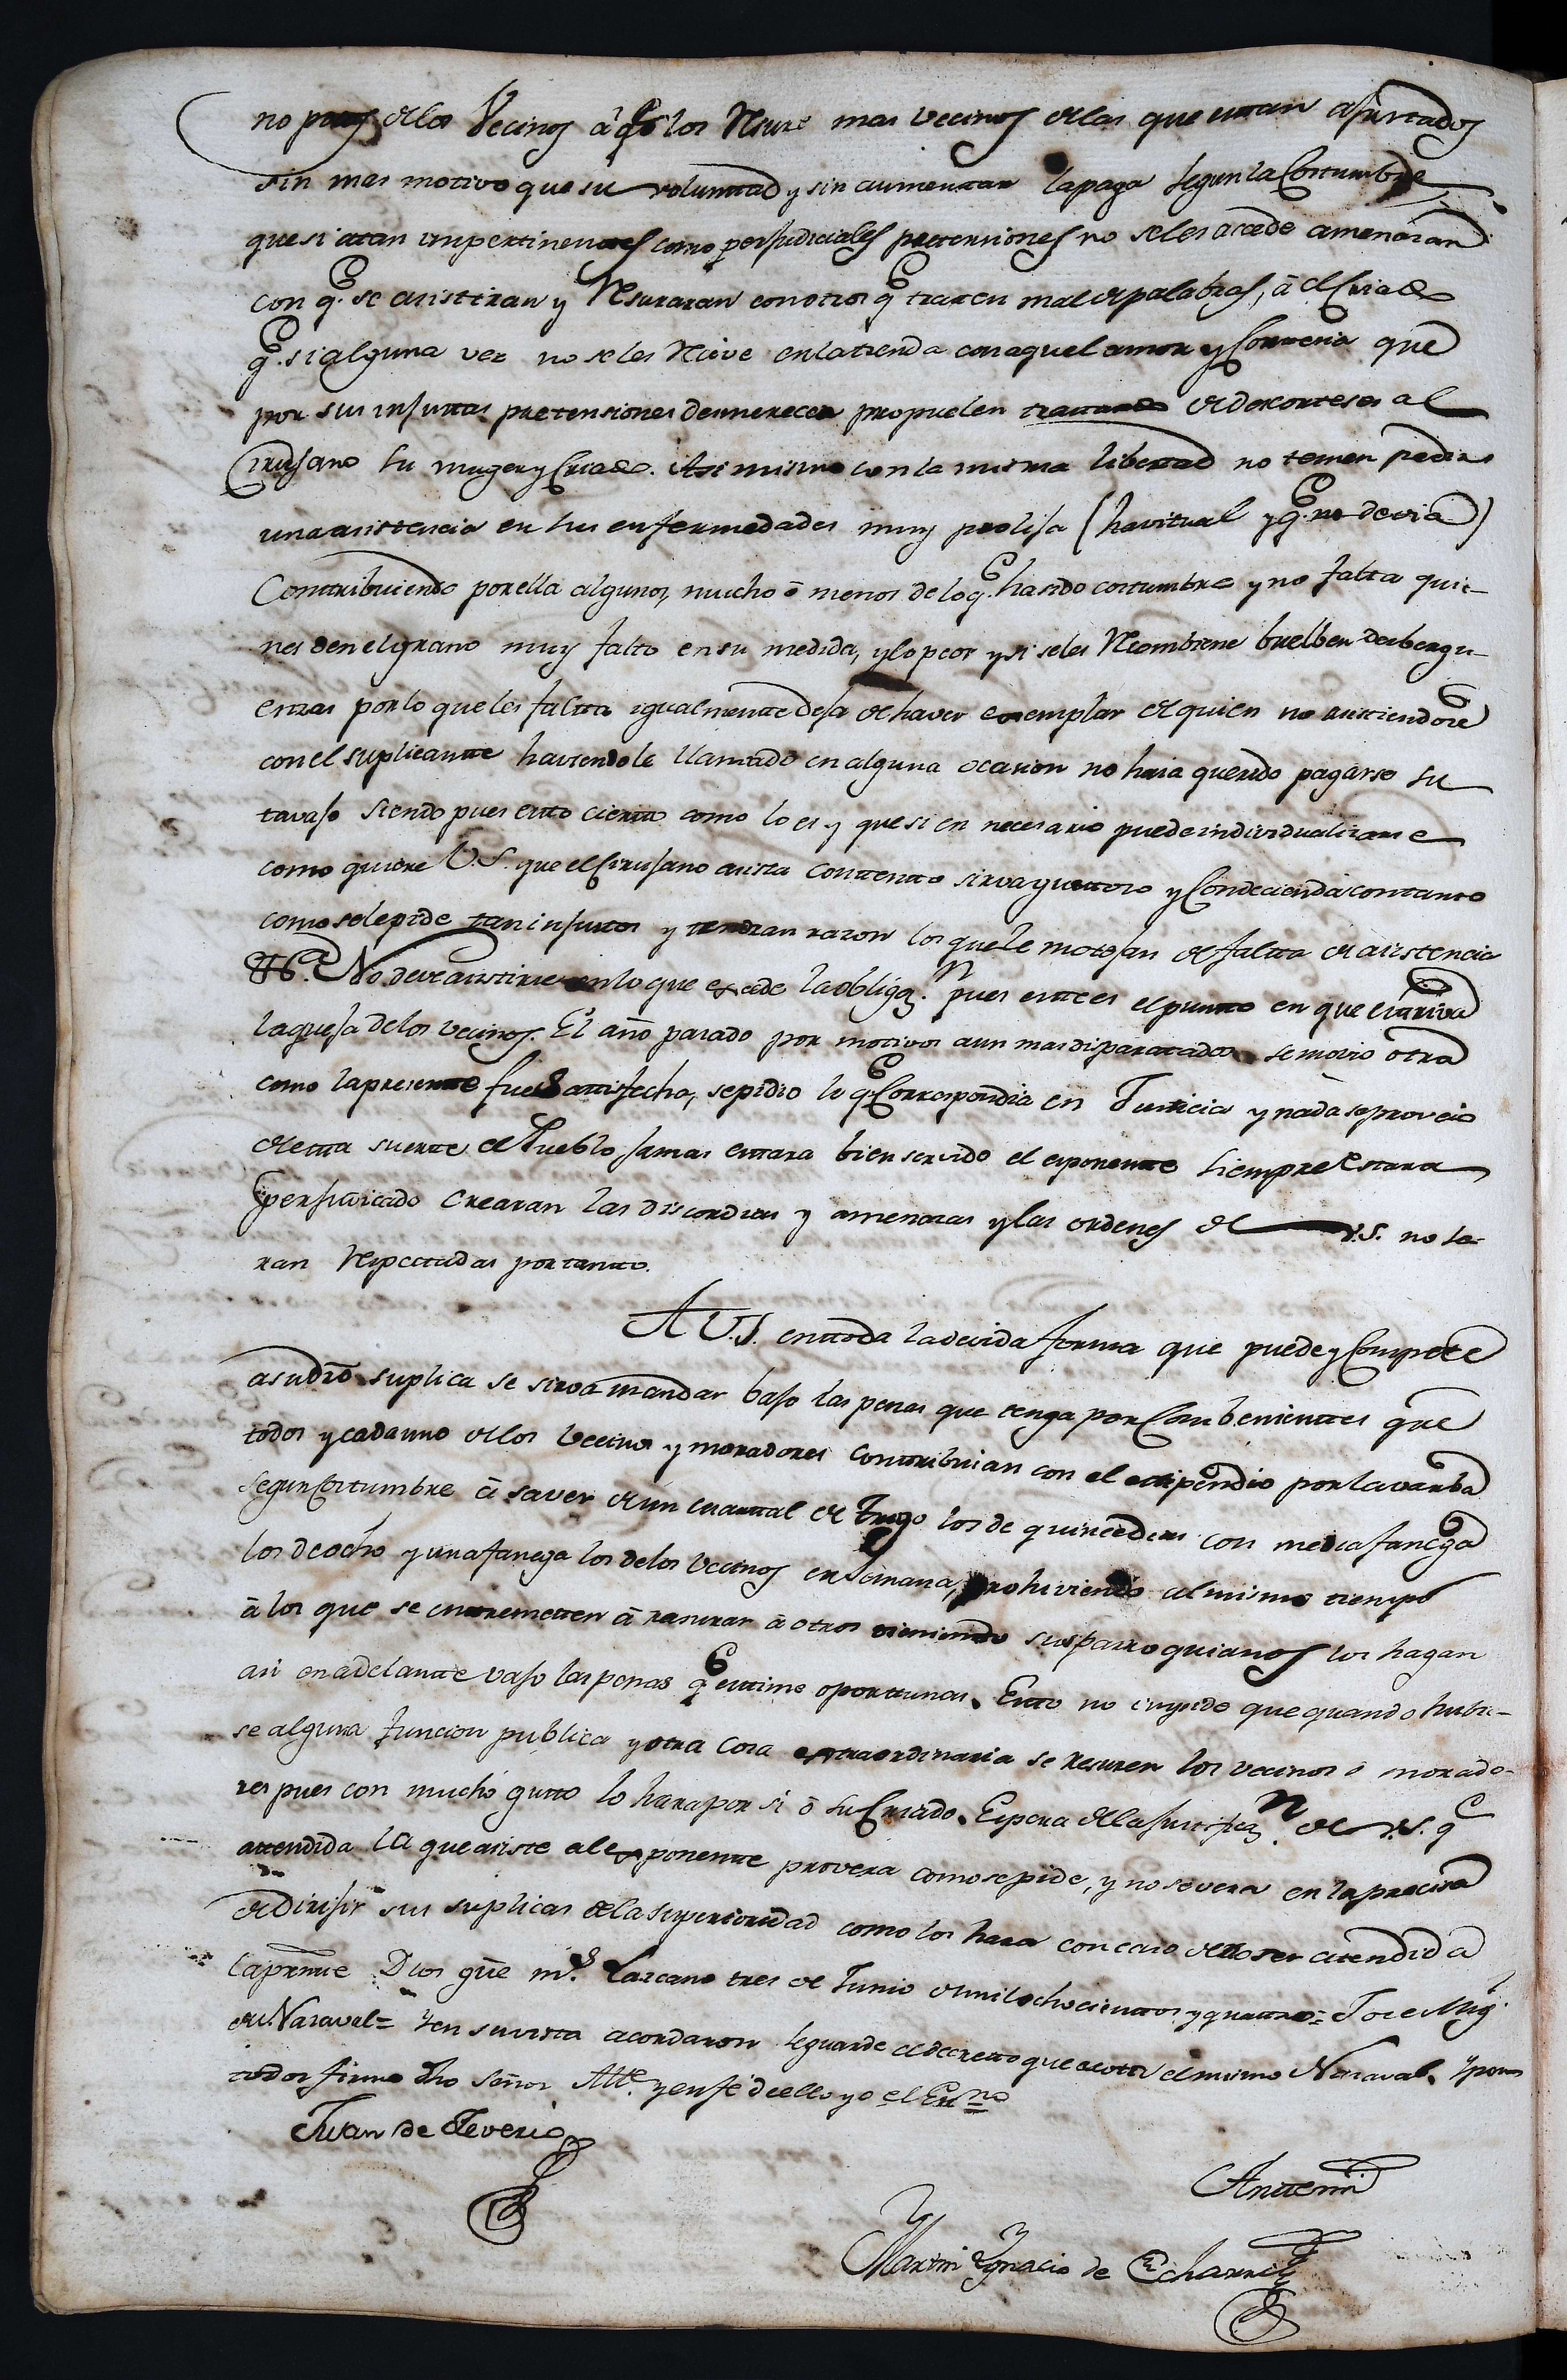 no pocos de los Vecinos á q.e los Resure mas veces de las que estan ajustados
sin mas motivo que su voluntad y sin aumentar la paga segun la Costumbre
que si a tan impertinentes como perjudiciales pretensiones no se les accede amenazan
con q.e se asistiran y Resuraran con otros q.e traten mal de palabras, á el Criado
q.e si alguna vez no se les Recive en la tienda con aquel amor y Cortesia que
por sus injustas pretensiones desmerecen propuelen tratando de descorteses al
Cirujano su muger y Criado. Asi mismo con la misma libertad no temen pedir
una asistencia en sus enfermedades muy prolija (havitual y q.e no devia)
Contribuiendo por ella algunos, mucho ó menos de lo q.e ha sido costumbre y no falta quie-
nes den el grano muy falto en su medida, y lo peor y si se les Recombiene buelben desbergu-
enzas por lo que les falta igualmente deja de haver exemplar de quien no asistiendose
con el suplicante haviendole llamado en alguna ocasion no haia querido pagarse su
travajo Siendo pues esto cierto como lo es y que si en necesario puede individualizarse
como quiere V.S. que el Cirujano asista contento sirva gustoso y Condecienda con tanto
como se le pide tan injusto y tendran razon los que le motejan de falta de asistencia
No deve asistirse en lo que excede la obligaz.n pues este es el punto en que estriva
la queja de los vecinos. El año pasado por motivos aun mas disparatados se movio otra
como la presente fue Satisfecha, se pidio lo q.e Correspondia en Justicia y nada se proveio
de esta suerte el Pueblo jamas estara bien servido el exponente siempre Estara
perjuicado Crearan las discordias y amenazas y las ordenes de V.S. no se-
ran Respectadas por tanto.
A V.S. en toda la devida forma que puede y Compete
a su dro suplica se sirva mandar bajo las penas que tenga por Combenientes que
todos y cada uno de los vecinos y moradores Contribuian con el estipendio por la barba
segun Costumbre á saver de un cuartal de Trigo los de quince dias con media fanega
los de ocho y una fanega los de los vecinos en Semana, prohiviendo al mismo tiempo
á los que se entremeten á rasurar á otros siendo sus parroquianos los hagan
asi en adelante vajo las penas q.e estime oportunas. Esto no impide que quando hubie-
se alguna funcion publica y otra cosa extraordinaria se resuren los vecinos ó morado-
res pues con mucho gusto lo hara por si ó su Criado. Espera de la justificaz.n de V.S. q.e
attendida la que asiste al exponente provera como se pide, y no se vera en la precisa
de dirijir sus suplicas de la superioridad como los hara con caso de no ser atendida
la presente Dios gue m.s Lazcano tres de Junio de mil ochocientos y quatro = Jose Mig.l
de Naraval = Y en su vista acordaron se guarde el decreto que acota el mismo Naraval. Y por
todos firmo dho Señor Alt.e y en fe de ello yo el Esno
Juan de Yeverio
Ante mi
Martin Ygnacio de Echarri